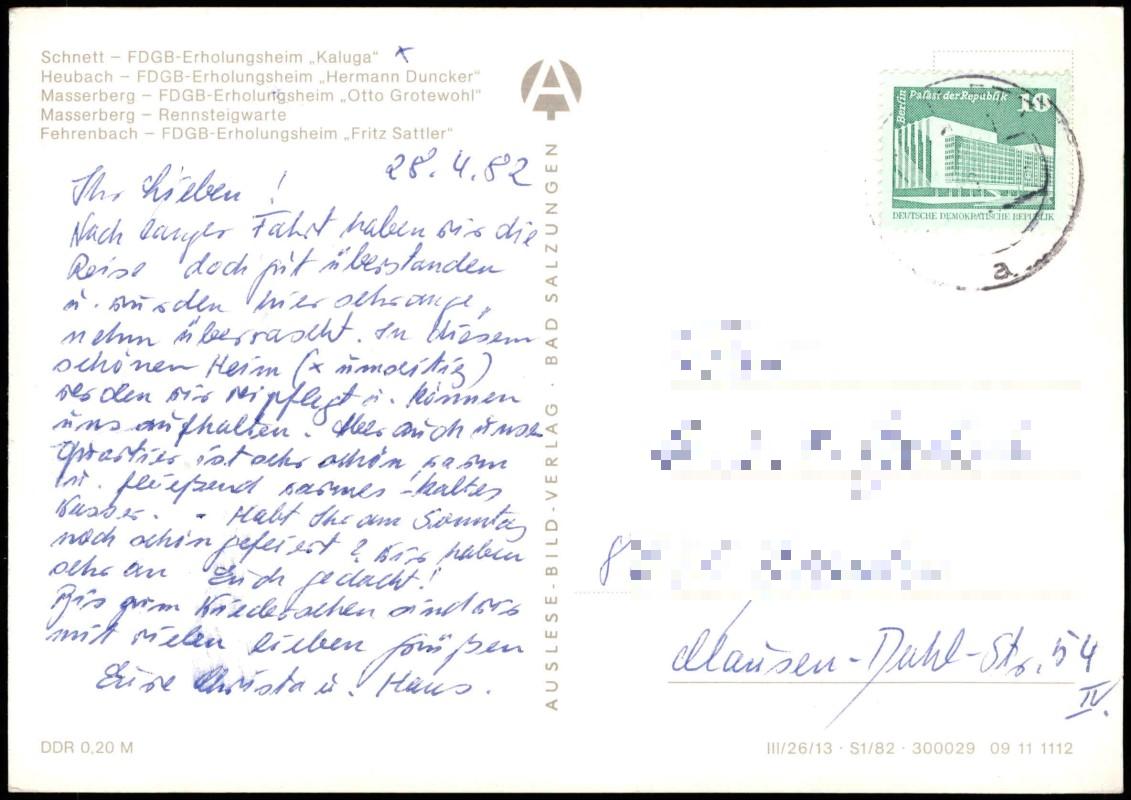 Schnett – FDGB-Erholungsheim „Kaluga“ x
Heubach – FDGB-Erholungsheim „Hermann Duncker“
Masserberg – FDGB-Erholungsheim „Otto Grotewohl“
Masserberg – Rennsteigwarte
Fehrenbach – FDGB-Erholungsheim „Fritz Sattler“
28.4.82
Ihr Lieben!
Nach langer Fahrt haben wir die
Reise doch gut überstanden
u. wurden hier sehr ange-
nehm überrascht. In diesem
schönen Heim (x umseitig)
werden wir verpflegt u. können
uns aufhalten. Aber auch unser
Quartier ist sehr schön warm
u. fließend warmes - kaltes
Wasser. - Habt Ihr am Sonntag
noch schön gefeiert? Wir haben
sehr an Euch gedacht!
Bis zum Wiedersehen sind wir
mit vielen lieben Grüßen
Eure Christa u. Hans.
AUSLESE-BILD-VERLAG · BAD SALZUNGEN
A
Berlin Palast der Republik 10
DEUTSCHE DEMOKRATISCHE REPUBLIK
a
8
Clausen-Dahl-Str. 54
IV.
DDR 0,20 M
III/26/13 · S1/82 · 300029 09 11 1112